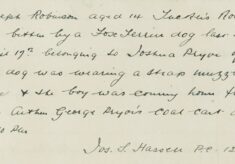 Joseph Robinson aged 14
bitten by a Fox Terrier dog last
19th belonging to Joshua Pryor of
dog was wearing a strap muzz
& the boy was coming home f
Arthur George Pryor's coal cart a
Jos. S. P.C. 12